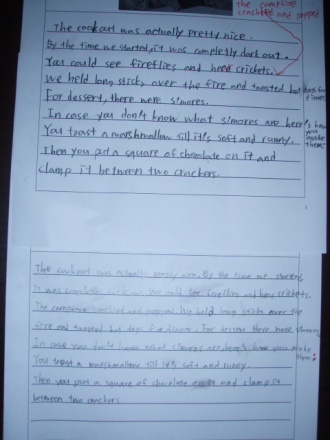 the campfire
crackled and popped
The cookout was actually pretty nice.
By the time we started, it was completly dark out.
You could see fireflies and hear crickets.
We held long sticks over the fire and toasted hot dogs for dinner.
For dessert, there were s'mores.
In case you don't know what s'mores are here's how you make them:
You toast a marshmallow till it's soft and runny.
Then you put a square of chocolate on it and
clamp it between two crackers.
The cookout was actually pretty nice. By the time we started,
it was completly dark out. You could see fireflies and hear crickets.
The campfire crackled and popped. We held long sticks over the
fire and toasted hot dogs for dinner. For dessert there were s'mores.
In case you don't know what s'mores are here's how you make them:
You toast a marshmallow till it's soft and runny.
Then you put a square of chocolate on it and clamp it
between two crackers.